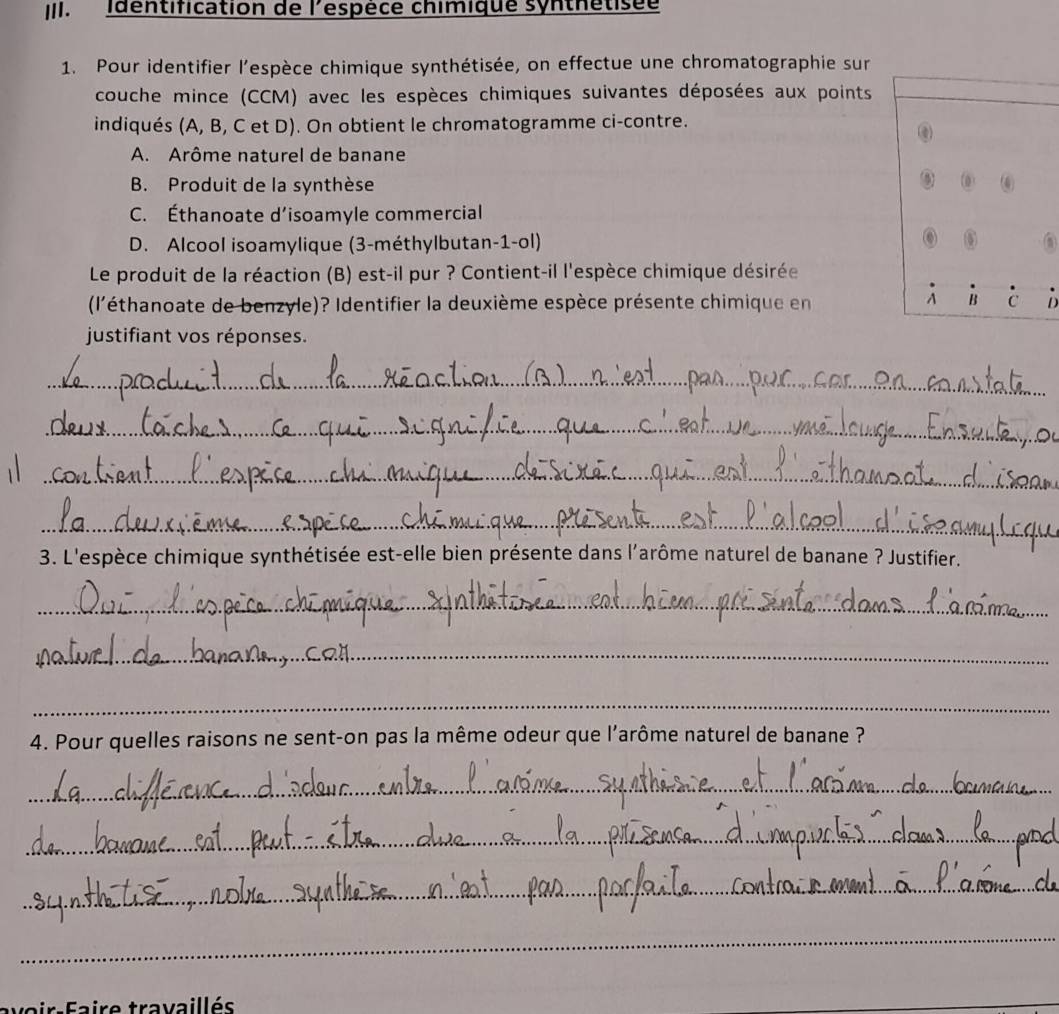 III. Identification de l'espèce chimique synthétisée
1. Pour identifier l'espèce chimique synthétisée, on effectue une chromatographie sur
couche mince (CCM) avec les espèces chimiques suivantes déposées aux points
indiqués (A, B, C et D). On obtient le chromatogramme ci-contre.
A. Arôme naturel de banane
B. Produit de la synthèse
C. Éthanoate d'isoamyle commercial
D. Alcool isoamylique (3-méthylbutan-1-ol)
Le produit de la réaction (B) est-il pur ? Contient-il l'espèce chimique désirée
(l'éthanoate de benzyle)? Identifier la deuxième espèce présente chimique en
justifiant vos réponses.
A B C D
Le produit de la réaction (B) n'est pas pur car on constate
deux tâches, ce qui signifie que c'est un mélange Ensuite, o
il contient l'espèce chimique désirée qui est l'éthanoat d'isoam
la deuxième espèce chimique présente est l'alcool d'isoamyliqu
3. L'espèce chimique synthétisée est-elle bien présente dans l'arôme naturel de banane ? Justifier.
Oui, l'espèce chimique synthétisée est bien présente dans l'arôme
naturel de banane, car
4. Pour quelles raisons ne sent-on pas la même odeur que l'arôme naturel de banane ?
La différence d'odeur entre l'arôme synthésie et l'arôme de banane
de banane est peut-être due à la présence d'"impurtés" dans le prod
synthétisé, notre synthèse n'est pas parfaite contrairement à l'arôme de
avoir-Faire travaillés